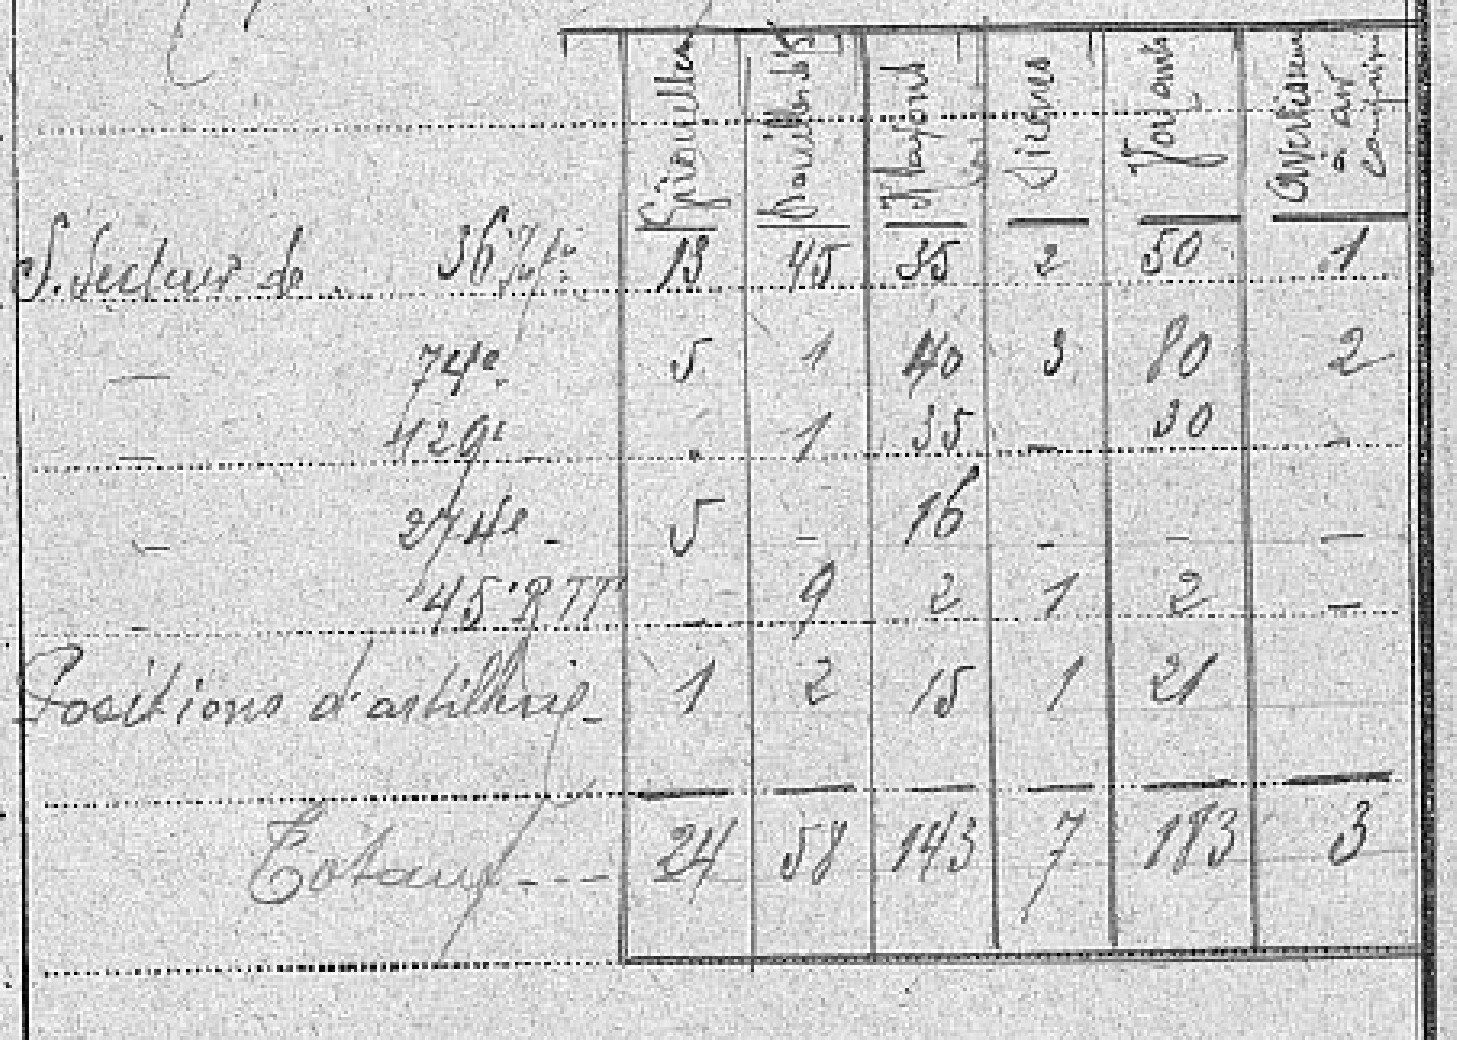 Klaxons Sirènes Avertisseurs à air comprimé
S. Secteur du 36e 13 45 35 2 50 1
— 74e 5 1 40 3 80 2
— 129e " 1 35 - 30 -
— 274e - 5 - 16 - - —
- 45e R TT - 9 2 1 2 —
Positions d'artillerie - 1 2 15 1 21
Totaux --- 24 58 143 7 183 3